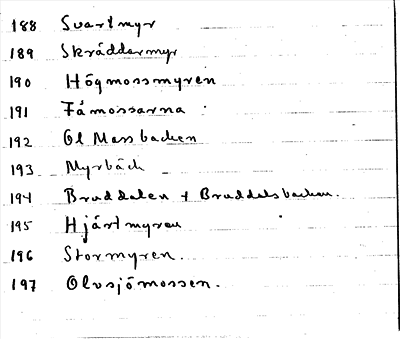 188 Svartmyr
189 Skräddarmyr
190 Högmossmyren
191 Fåmossarna
192 Ol Mass backen
193 Myrbäck
194 Bruddalen + Bruddalsbacken.
195 Hjärtmyren
196 Stormyren.
197 Olvsjömossen.